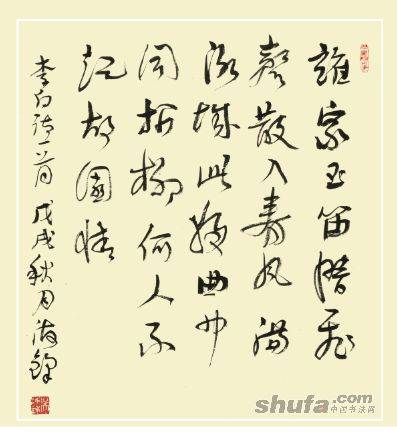 誰家玉笛暗飛
聲散入春風滿
洛城此夜曲中
聞折柳何人不
起故園情
李白詩一首 戊戌秋月
shufa.com
中国书法网